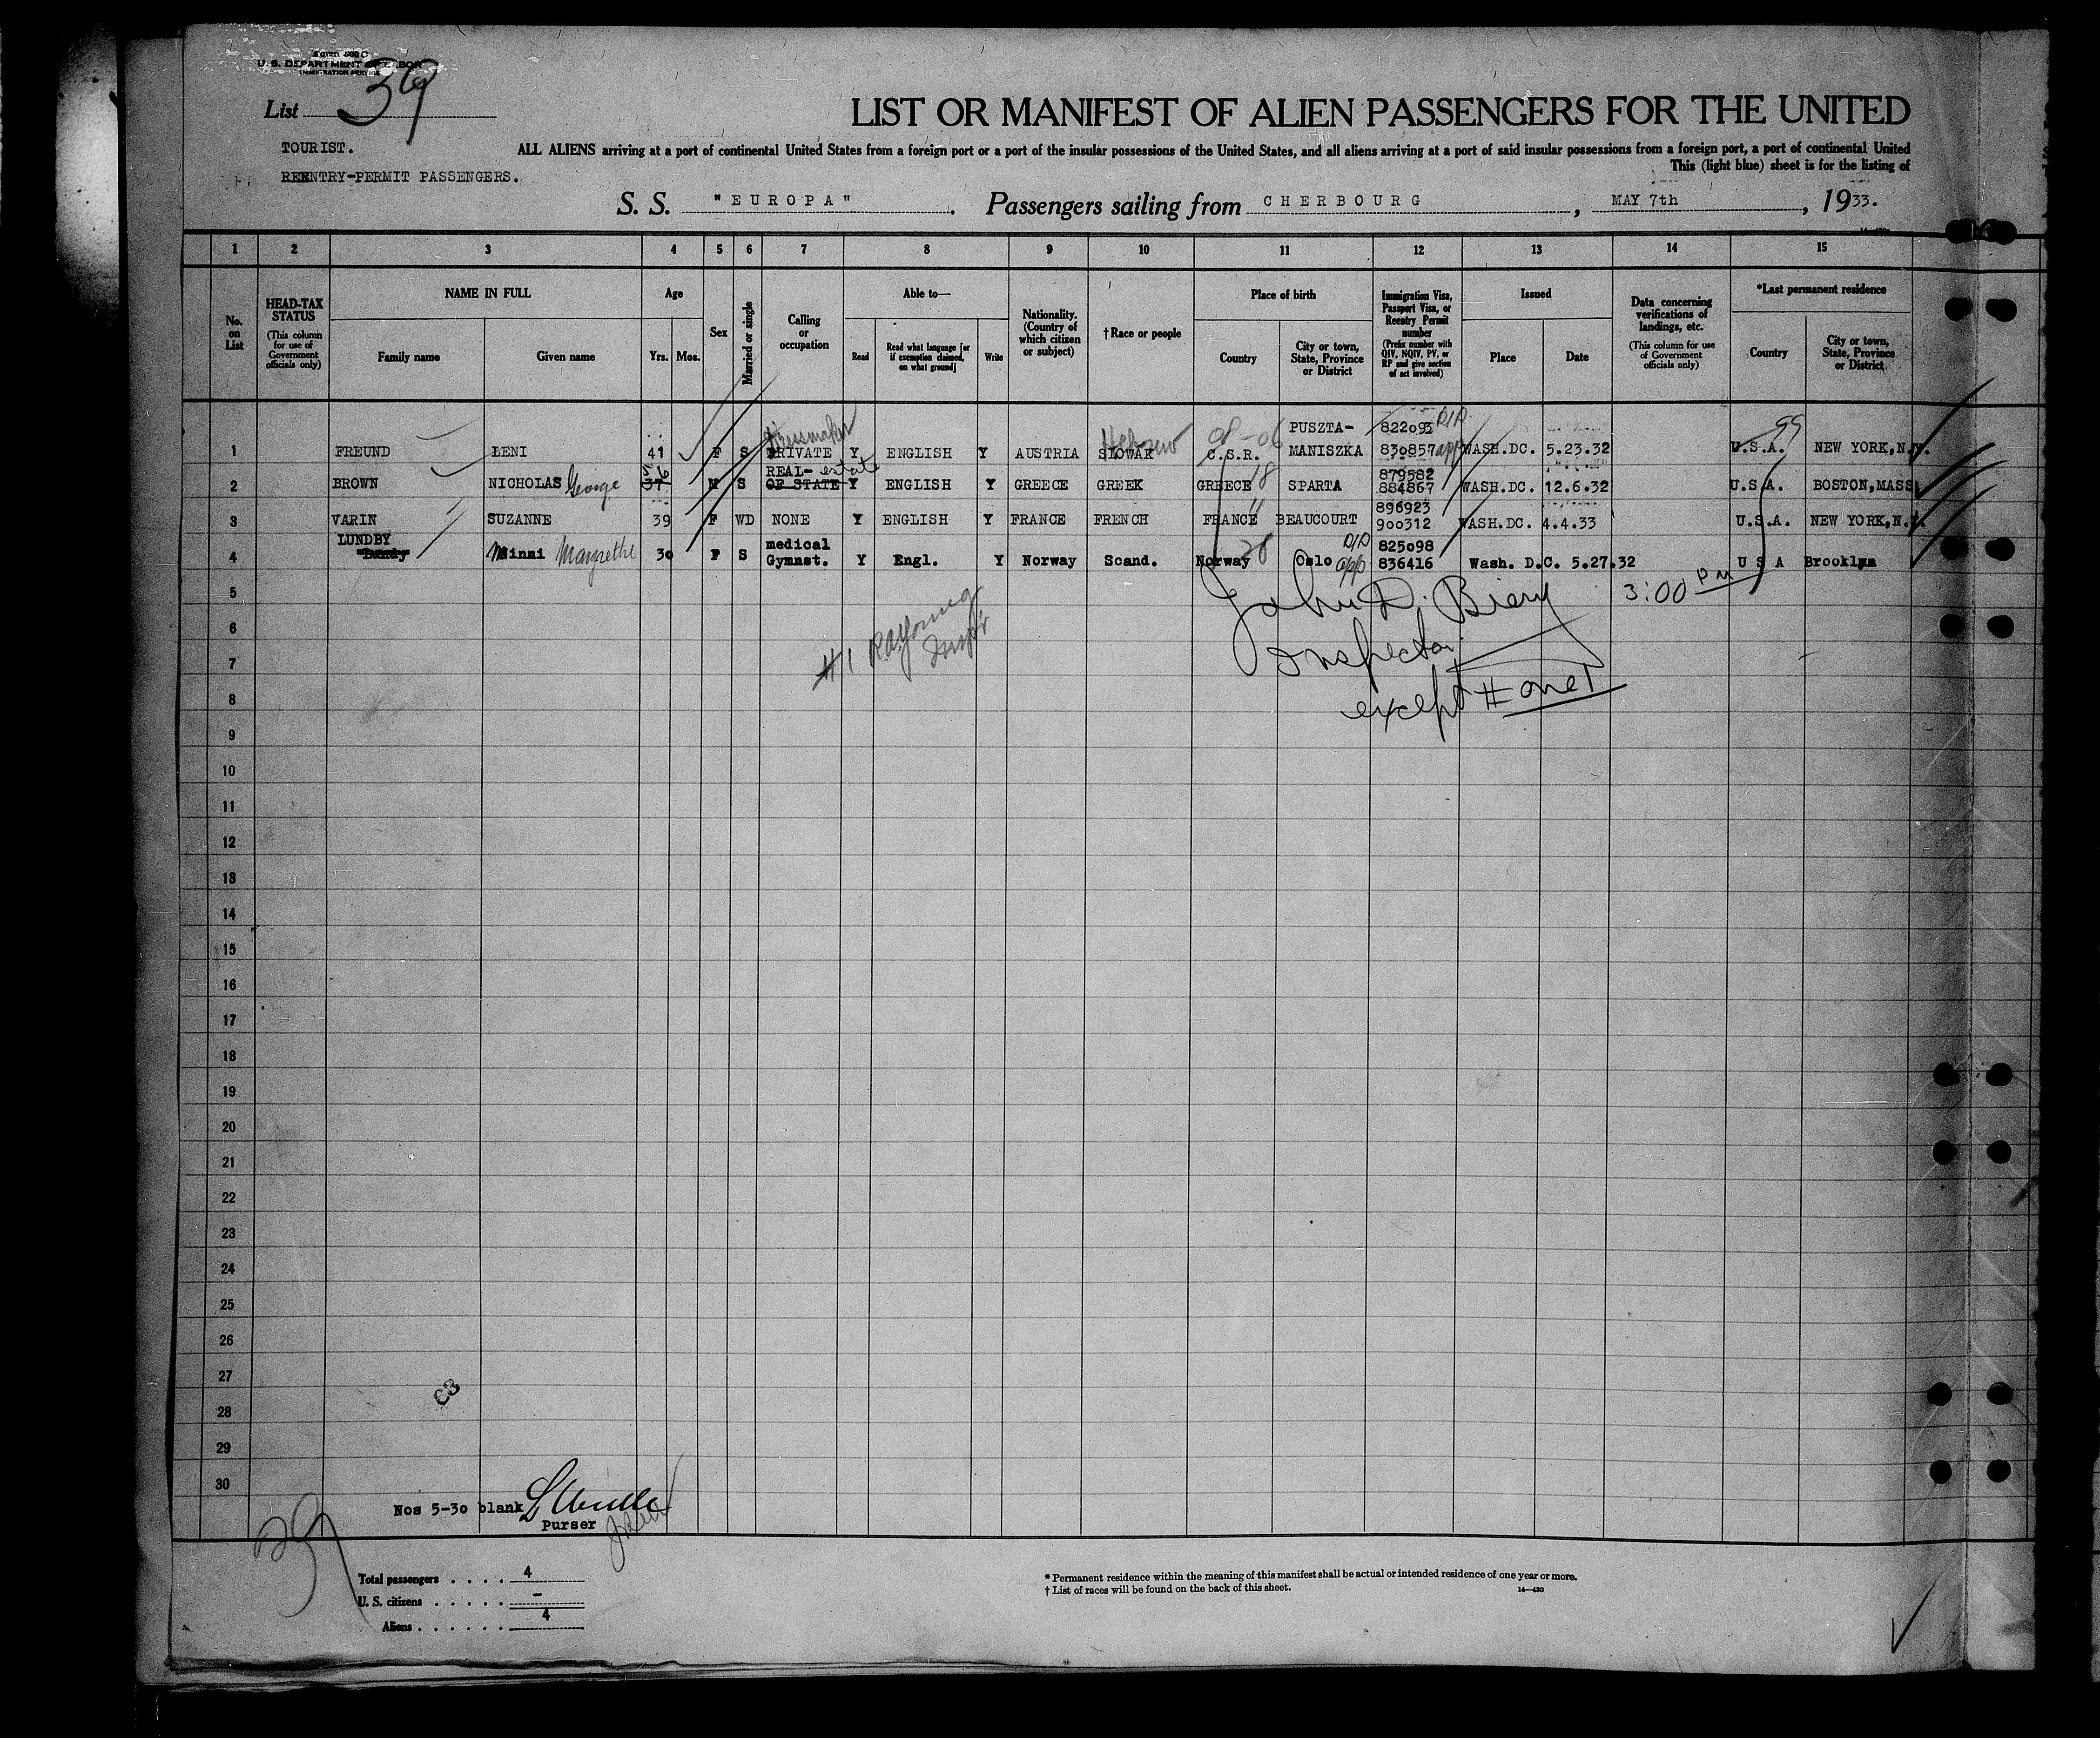 U. S. DEPARTMENT OF LABOR
IMMIGRATION SERVICE
List 39
LIST OR MANIFEST OF ALIEN PASSENGERS FOR THE UNITED
TOURIST.
REENTRY-PERMIT PASSENGERS.
ALL ALIENS arriving at a port of continental United States from a foreign port or a port of the insular possessions of the United States, and all aliens arriving at a port of said insular possessions from a foreign port, a port of continental United
This (light blue) sheet is for the listing of
S. S. "EUROPA". Passengers sailing from CHERBOURG, MAY 7th, 1933.
1 2 3 4 5 6 7 8 9 10 11 12 13 14 15
No. on List
HEAD-TAX STATUS
(This column for use of Government officials only)
NAME IN FULL
Family name
Given name
Age
Yrs. Mos.
Sex
Married or single
Calling or occupation
Able to—
Read
Read what language [or if exemption claimed, on what ground]
Write
Nationality. (Country of which citizen or subject)
†Race or people
Place of birth
Country
City or town, State, Province or District
Immigration Visa, Passport Visa, or Reentry Permit number
(Prefix number with QIV, NQIV, PV, or RP and give section of act involved)
Issued
Place
Date
Data concerning verifications of landings, etc.
(This column for use of Government officials only)
*Last permanent residence
Country
City or town, State, Province or District
Dressmaker PUSZTA- 822093 99
1 FREUND LENI 41 F S PRIVATE Y ENGLISH Y AUSTRIA SLOWAK Hebrew C.S.R. MANISZKA 830857 app WASH.DC. 5.23.32 U.S.A. NEW YORK,N.Y.
56 REAL- estate 18 879582
2 BROWN NICHOLAS George 37 M S OF STATE Y ENGLISH Y GREECE GREEK GREECE SPARTA 884867 WASH.DC. 12.6.32 U.S.A. BOSTON,MASS
896923
3 VARIN SUZANNE 39 F WD NONE Y ENGLISH Y FRANCE FRENCH FRANCE BEAUCOURT 900312 WASH.DC. 4.4.33 U.S.A. NEW YORK,N.Y.
LUNDBY medical 825098
4 Minni Margrethe 30 F S Gymnast. Y Engl. Y Norway Scand. Norway Oslo app 836416 Wash. D.C. 5.27.32 U S A Brooklyn
5 John D. Biery 3:00 PM
6 Inspector
7 #1
8 except # one 1
9
10
11
12
13
14
15
16
17
18
19
20
21
22
23
24
25
26
27
C3
28
29
30
Nos 5-30 blank
Purser
39
Total passengers . . . . 4
U. S. citizens . . . . . –
Aliens . . . . . . 4
* Permanent residence within the meaning of this manifest shall be actual or intended residence of one year or more.
† List of races will be found on the back of this sheet.
14—430